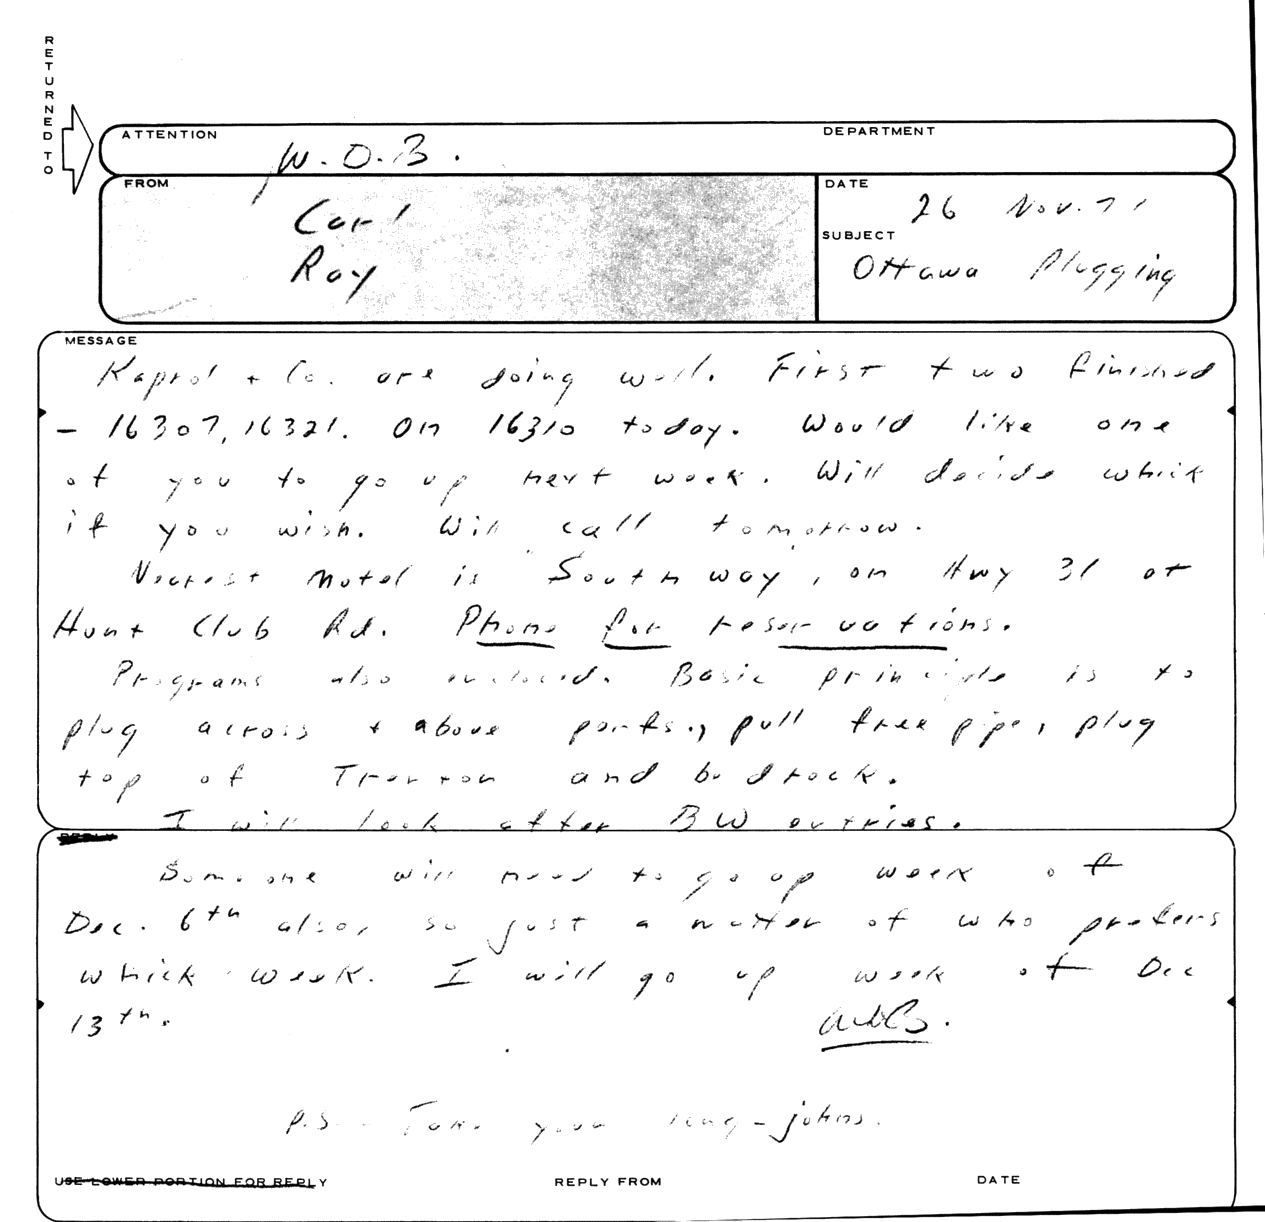 RETURNED TO
ATTENTION W.O.B. DEPARTMENT
FROM Carl DATE 26 Nov. 71
Roy SUBJECT Ottawa Plugging
MESSAGE
Kaprol + Co. are doing well. First two finished
- 16307, 16321. On 16310 today. Would like one
of you to go up next week. Will decide which
if you wish. Will call tomorrow.
Nearest motel is "Southway", on Hwy 31 at
Hunt Club Rd. Phone for reservations.
Programs also enclosed. Basic principle is to
plug across + above perfs., pull free pipe, plug
top of Trenton and bedrock.
I will look after BW outries.
REPLY
Someone will need to go up week of
Dec. 6th also, so just a matter of who prefers
which week. I will go up week of Dec
13th.
P.S. - Take your long-johns.
USE LOWER PORTION FOR REPLY REPLY FROM DATE